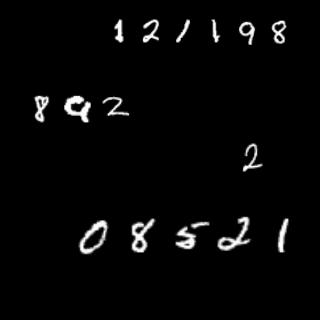 121198
892
2
08521